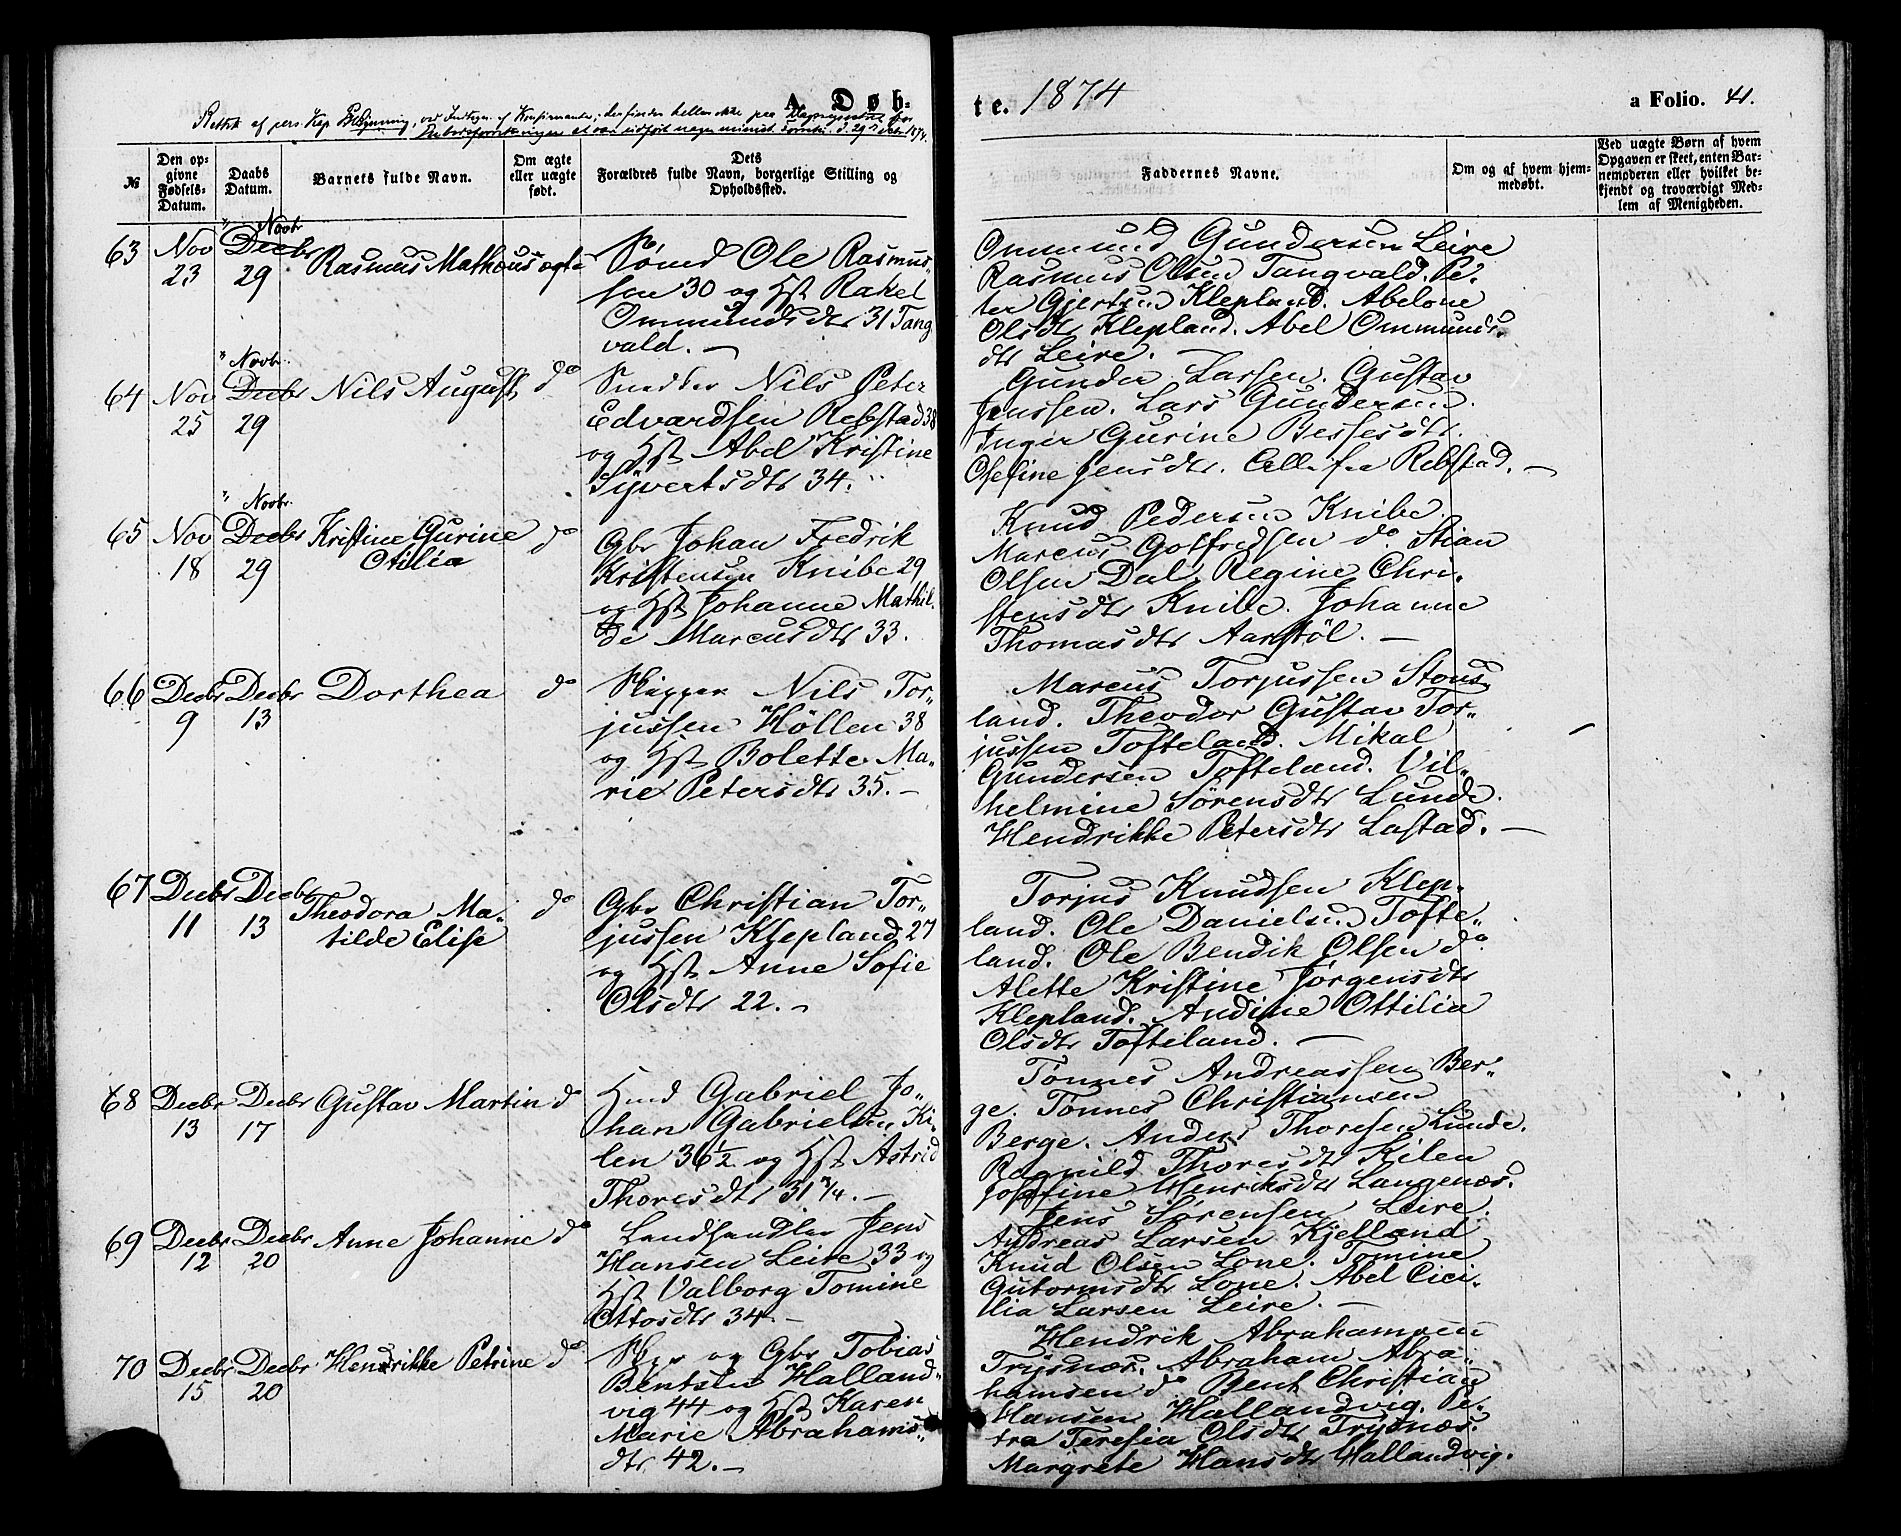 A. Døb-
te. 1874
a Folio. 41.
Rettet af pers. Kap.
№
Den op-
givne
Fødsels-
Datum.
Daabs
Datum.
Barnets fulde Navn.
Om ægte
eller uægte
født.
Dets
Forældres fulde Navn, borgerlige Stilling og
Opholdssted.
Faddernes Navne.
Om og af hvem hjem-
medøbt.
Ved uægte Børn af hvem
Opgaven er skeet, enten Bar-
nemoderen eller hvilket be-
kjendt og troværdigt Med-
lem af Menigheden.
63 Nov 23
Novbr
Decbr 29
Rasmus Matheus ægte
Sømd Ole Rasmus-
sen 30 og Hst Rakel
Ommundsdtr 31 Tang
vald. —
Ommund Gundersen Leire
Rasmus Olsen Tangvald. Pe-
ter Gjertsen Klepland. Abelone
Olsdtr Klepland. Abel Ommunds-
dtr Leire. —
64 Nov 25
Novbr
Decbr 29
Nils August do
Snedker Nils Peter
Edvardsen Rebstad 38
og Hst Abel Kristine
Syvertsdtr 34.
Gunder Larsen. Gustav
Jenssen. Lars Gundersen.
Inger Gurine Bessesdtr.
Osefine Jensdtr. Alle fra Rebstad. —
65 Nov 18
Novbr
Decbr 29
Kristine Gurine
Otilia
do
Gbr Johan Fredrik
Kristensen Knibe 29
og Hst Johanne Mathil-
de Marcusdtr 33.
Knud Pedersen Knibe.
Marcus Gotfredsen do Stian
Olsen Dal. Regine Chri-
stensdtr Knibe. Johanne
Thomasdtr Aarstöl. —
66 Decbr 9 Decbr 13
Dorthea do
Skipper Nils Tor-
jussen Höllen 38
og Hst Bolette Ma-
rie Petersdtr 35. —
Marcus Torjussen Stous-
land. Theodor Gustav Tor-
jussen Tofteland. Mikal
Gundersen Tofteland. Vil-
helmine Sörensdtr Lunde.
Hendrikke Petersdtr Lastad. —
67 Decbr 11 Decbr 13
Theodora Ma-
tilde Elise
do
Gbr Christian Tor-
jussen Klepland 27
og Hst Anne Sofie
Olsdtr 22. —
Torjus Knudsen Klep-
land. Ole Danielsen Tofte-
land. Ole Bendik Olsen do
Alette Kristine Jörgensdtr
Klepland. Andine Ottilia
Olsdtr Tofteland. —
68 Decbr 13 Decbr 17
Gustav Martin do
Hmd Gabriel Jo-
han Gabrielsen Ki-
len 36½ og Hst Astrid
Thoresdtr 31 ¾. —
Tönnes Andreassen Ber-
ge. Tönnes Christiansen
Berge. Anders Thoresen Lunde.
Ragnild Thoresdtr Kilen
Josefine Henriksdtr Langenæs.
69 Decbr 12 Decbr 20
Anne Johanne do
Landhandler Jens
Hansen Leire 33 og
Hst Valborg Tomine
Ottosdtr 34 —
Jens Sörensen Leire.
Andreas Larsen Kjelland
Knud Olsen Lone. Tomine
Gutormsdtr Lone. Abel Cici-
lia Larsen Leire. —
70 Decbr 15 Decbr 20
Hendrikke Petrine do
Skpr og Gbr Tobias
Bentsen Halland-
vig 44 og Hst Karen
Marie Abrahams-
dtr 42. —
Hendrik Abrahamsen
Trysnæs. Abraham Abra-
hamsen do Bent Christian
Hansen Hallandvig. Pe-
tra Teresia Olsdtr Trysnæs.
Margrete Hansdtr Hallandvig.